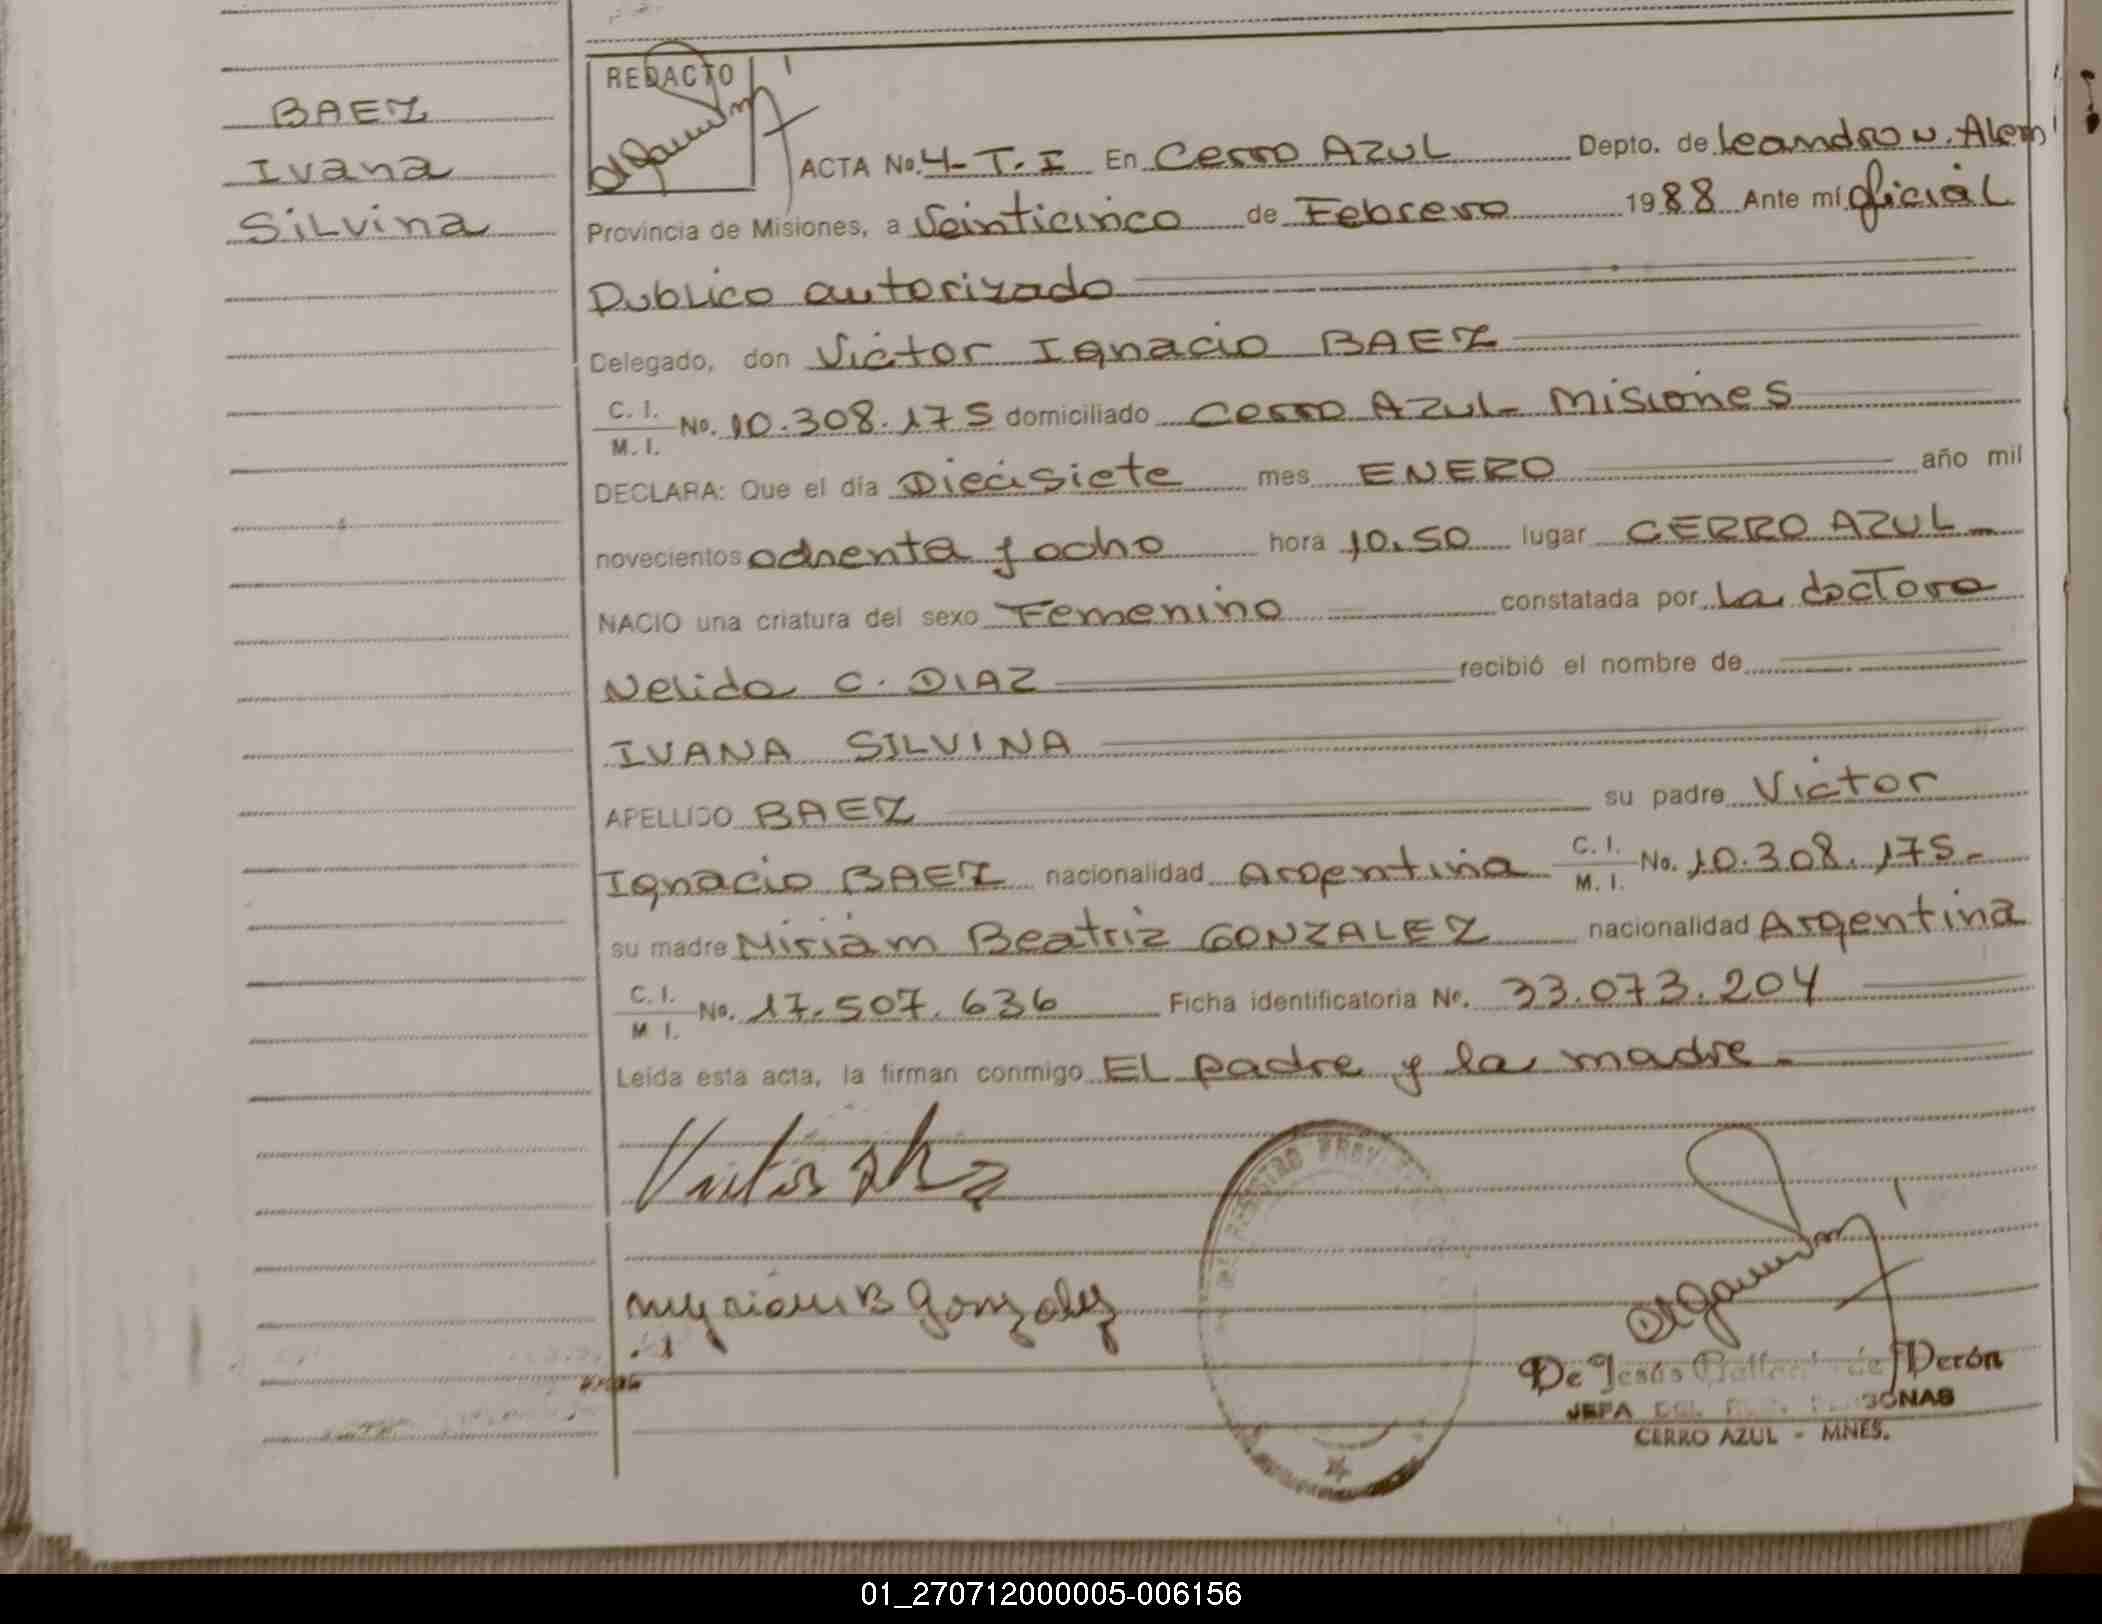 BAEZ
Ivana
Silvina
REDACTO
ACTA No. 4-T.I En Cerro AZUL Depto. de Leandro N. Alem
Provincia de Misiones, a Veinticinco de Febrero 1988 Ante mí oficial
Publico autorizado
Delegado, don Victor Ignacio BAEZ
C. I. / M. I. No. 10.308.175 domiciliado Cerro AZUL Misiones
DECLARA: Que el día Diecisiete mes ENERO año mil
novecientos ochenta y ocho hora 10.50 lugar CERRO AZUL
NACIO una criatura del sexo Femenino constatada por la doctora
Nelida C. DIAZ recibió el nombre de
IVANA SILVINA
APELLIDO BAEZ su padre Victor
Ignacio BAEZ nacionalidad Argentina C. I. / M. I. No. 10.308.175.-
su madre Miriam Beatriz GONZALEZ nacionalidad Argentina
C. I. / M I. No. 17.507.636 Ficha identificatoria No. 33.073.204
Leída esta acta, la firman conmigo El padre y la madre.
Myriam B Gonzalez
REGISTRO
De Jesús de Perón
JEFA DEL
CERRO AZUL - MNES.
01_270712000005-006156